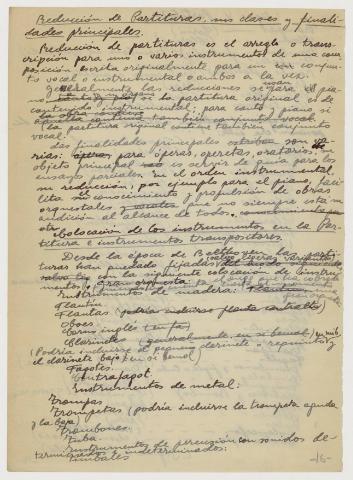 Reducción de Partituras, sus clases y finali-
dades principales.
Reducción de partituras es el arreglo o trans-
cripción para uno o varios instrumentos de una com-
posición escrita originalmente para un conjun-
to vocal o instrumental o ambos a la vez.
Generalmente las reducciones son para el pia-
no si la partitura original es de
conjunto instrumental; para canto y piano si
la partitura original contiene también conjunto
vocal.
Las finalidades principales son va-
rias: para óperas, operetas, oratorios, su
objeto principal es servir de guía para los
ensayos parciales. En el orden instrumental,
su reducción, por ejemplo para el piano faci-
lita el conocimiento y propulsión de obras
orquestales que no siempre están en
audición al alcance de todos.
Colocación de los instrumentos en la Par-
titura e instrumentos transpositores.
Desde la época de las parti-
turas han quedado fijadas (salvo ligeras variantes)
con la siguiente colocación de instru-
mentos
Instrumentos de madera:
Flautín
Flautas (podría incluirse flauta contralto)
Oboes
Corno inglés (en fa)
Clarinetes (generalmente en si bemol)
(Podría incluirse el pequeño clarinete o requinto y
el clarinete bajo) en si bemol
Fagotes
Contrafagot
Instrumentos de metal:
Trompas
Trompetas (podría incluirse la trompeta aguda
y la baja
Trombones
Tuba
Instrumentos de percusión con sonidos de-
terminados e indeterminados:
Timbales
-16-